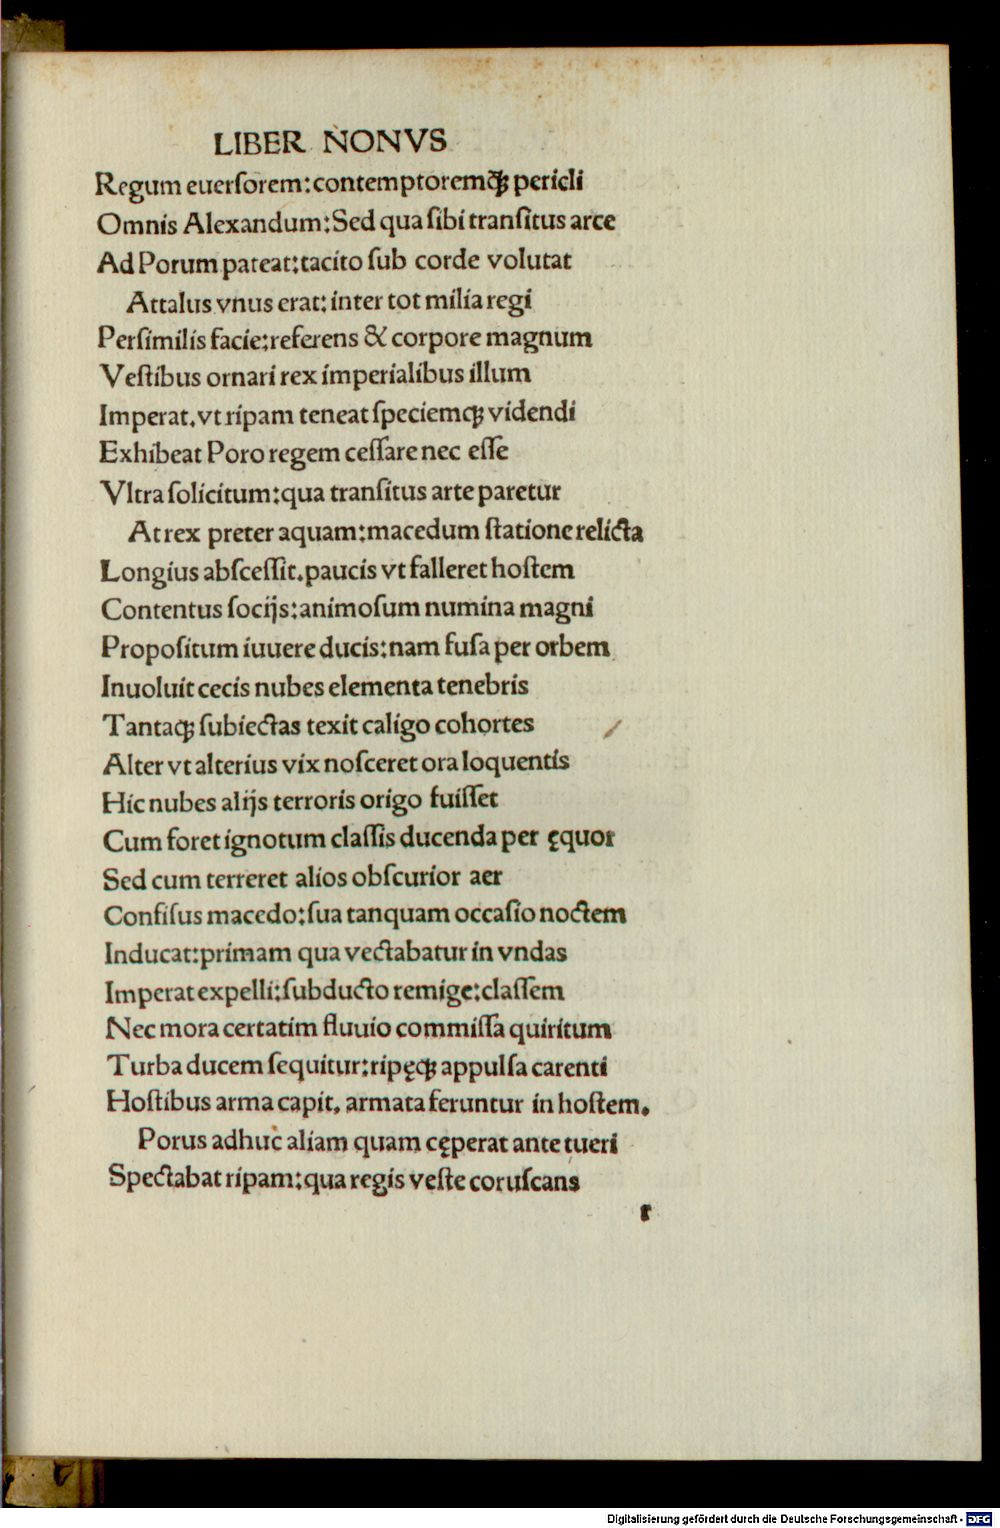 LIBER NONVS
Regum euerſorem:contemptoremqꝫ pericli
Omnis Alexandum:Sed qua ſibi tranſitus arce
Ad Porum pateat:tacito ſub corde volutat
Attalus vnus erat: inter tot milia regi
Perſimilis facie:referens & corpore magnum
Veſtibus ornari rex imperialibus illum
Imperat.vt ripam teneat ſpeciemqꝫ videndi
Exhibeat Poro regem ceſſare nec eſſe
Vltra ſolicitum:qua tranſitus arte paretur
At rex preter aquam:macedum ſtatione relicta
Longius abſceſſit.paucis vt falleret hoſtem
Contentus ſocijs:animoſum numina magni
Propoſitum iuuere ducis:nam fuſa per orbem
Inuoluit cecis nubes elementa tenebris
Tantaqꝫ ſubiectas texit caligo cohortes
Alter vt alterius vix noſceret ora loquentis
Hic nubes alijs terroris origo fuiſſet
Cum foret ignotum claſſis ducenda per ęquor
Sed cum terreret alios obſcurior aer
Confiſus macedo:ſua tanquam occaſio noctem
Inducat:primam qua vectabatur in vndas
Imperat expelli:ſubducto remige:claſſem
Nec mora certatim fluuio commiſſa quiritum
Turba ducem ſequitur:ripęqꝫ appulſa carenti
Hoſtibus arma capit. armata feruntur in hoſtem.
Porus adhuc aliam quam cęperat ante tueri
Spectabat ripam:qua regis veſte coruſcans
r
Digitalisierung gefördert durch die Deutsche Forschungsgemeinschaft - DFG